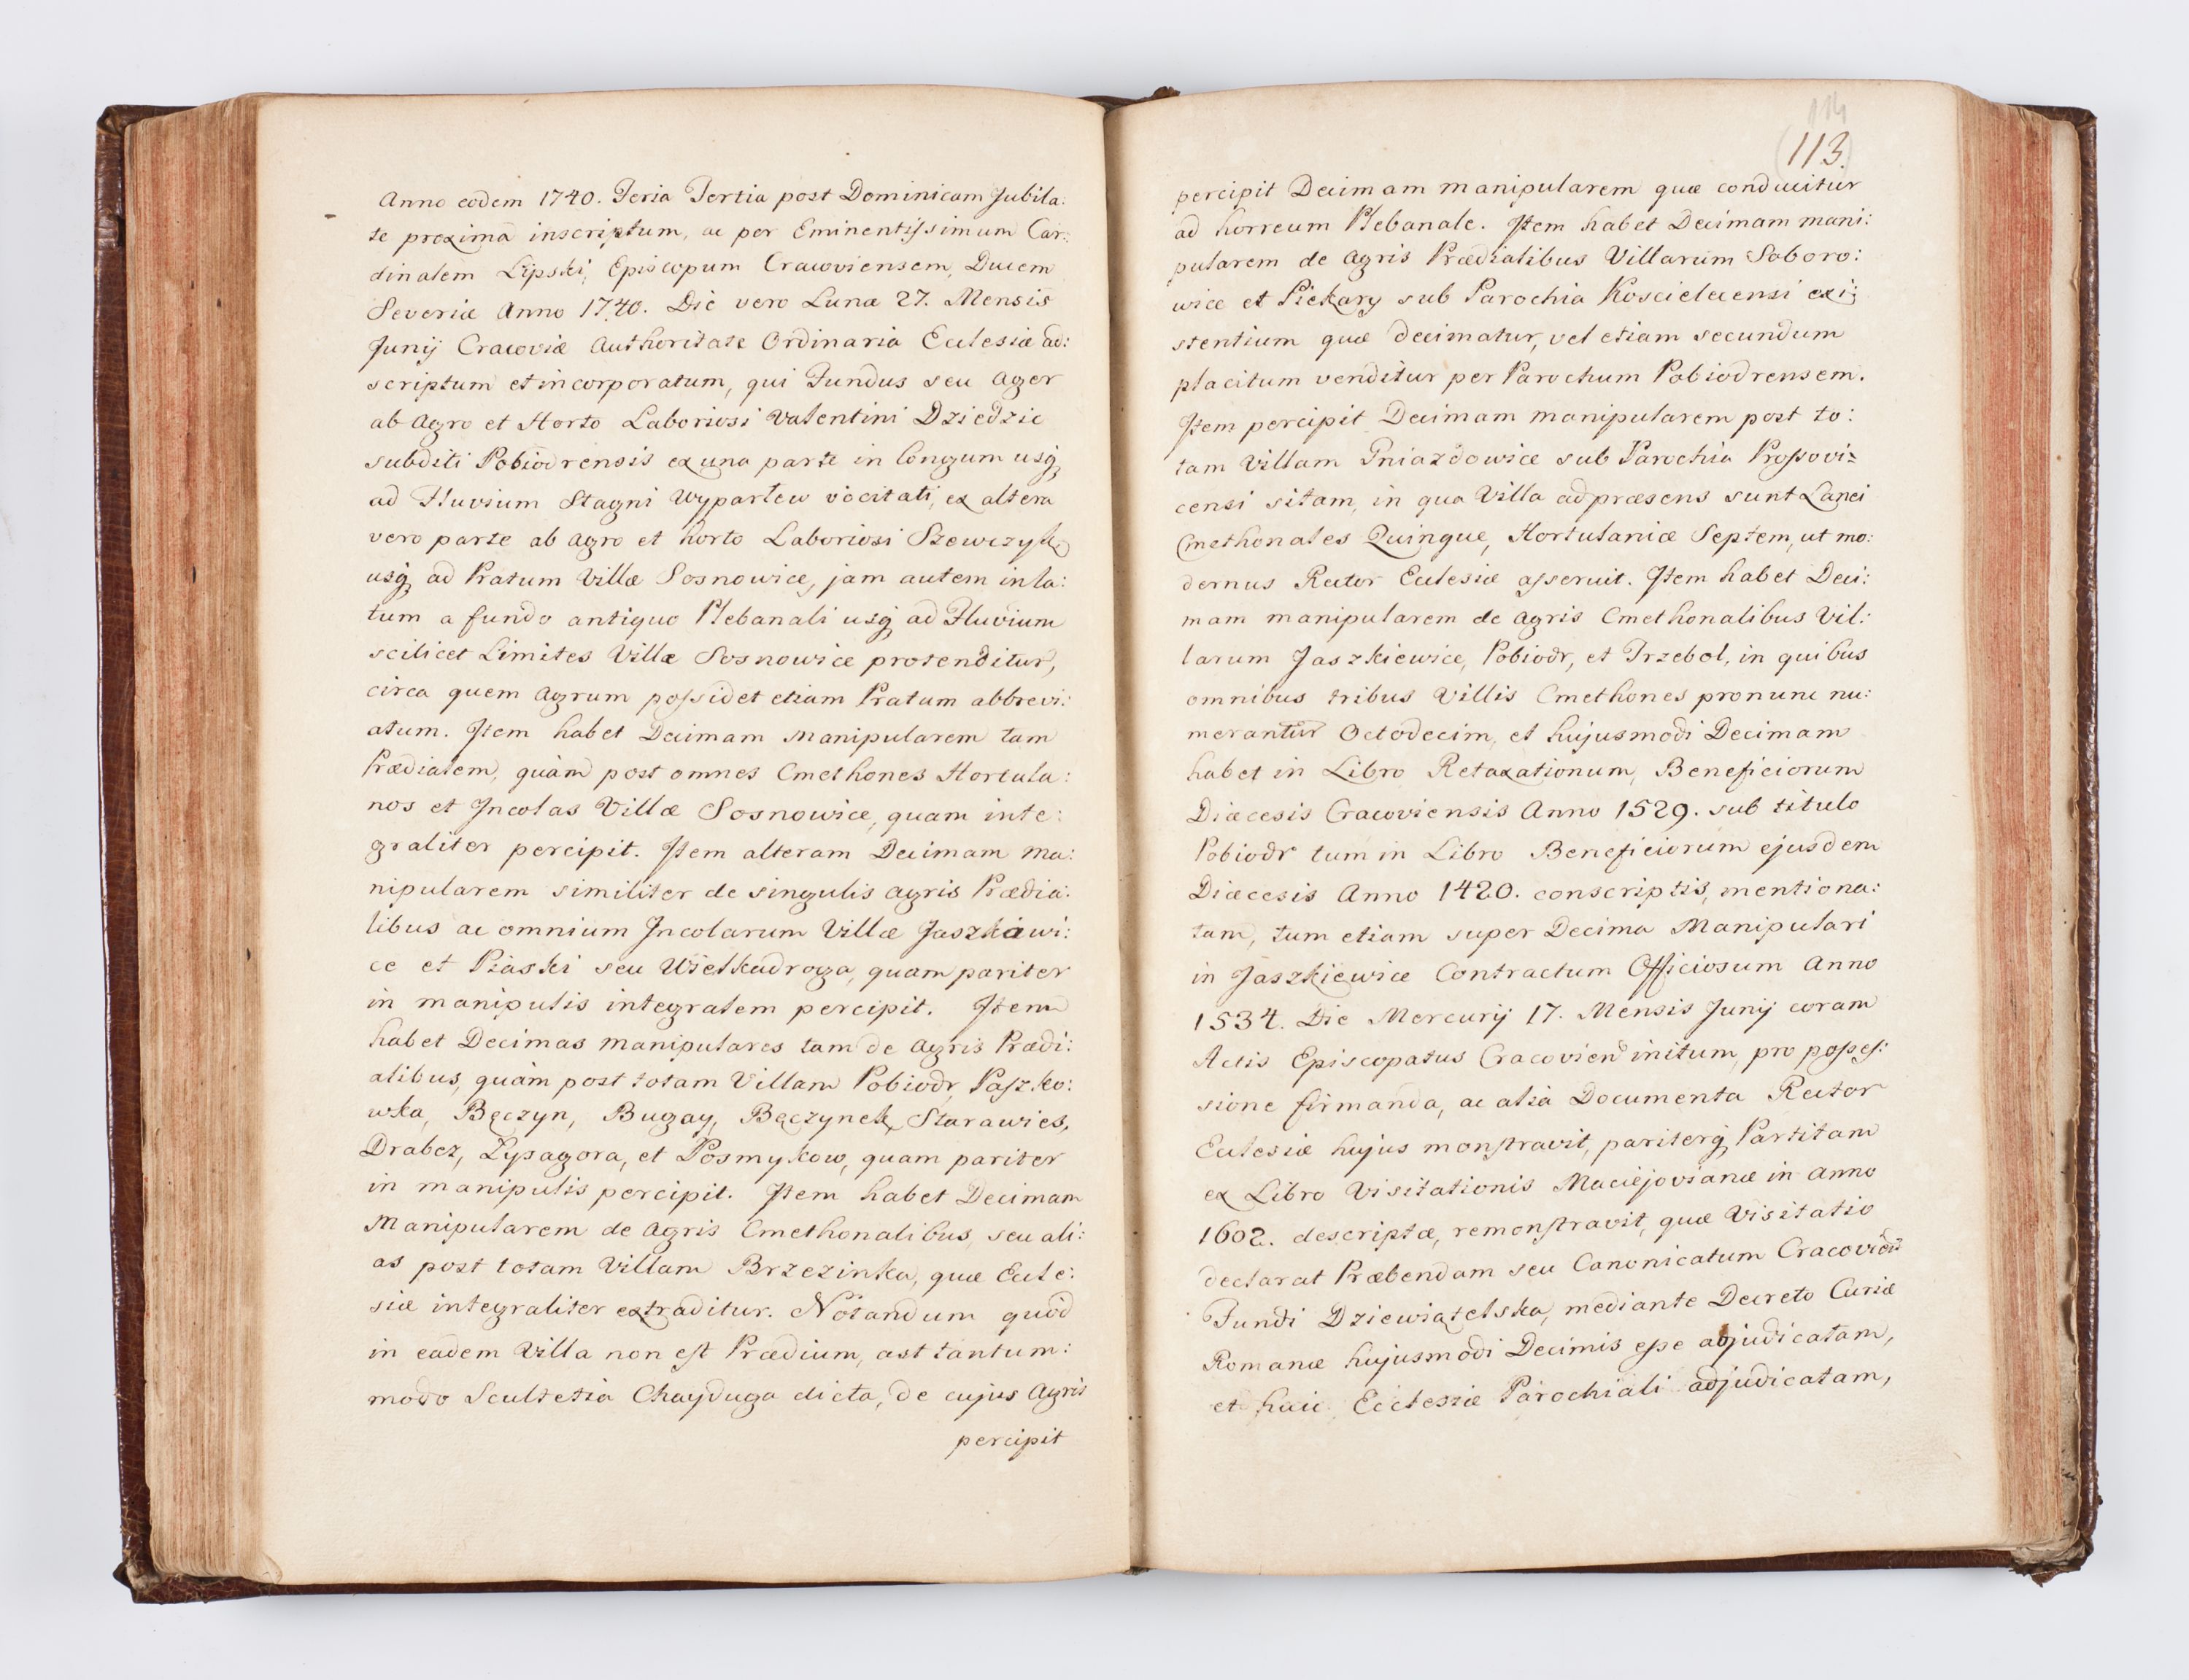 Anno eodem 1740. Feria Tertia post Dominicam Jubila:
te proximã inscriptum, ac per Eminentissimum Car:
dinalem Lipski, Episcopum Cracoviensem, Ducem
Severiæ Anno 1740. Die vero Lunæ 27. Mensis
Junij Cracoviæ Authoritate Ordinaria Ecclesiæ ad:
scriptum et incorporatum, qui Fundus seu Ager
ab Agro et Horto Laboriosi Valentini Dziedzic
subditi Pobiodrensis ex una parte in longum usq̨
ad Fluvium Stagni Wypartew vocitati, ex altera
vero parte ab Agro et horto Laboriosi Szewczyk
usq̨ ad Pratum Villæ Sosnowice, jam autem in la:
tum a fundo antiquo Plebanali usq̨ ad Fluvium
scilicet Limites Villæ Sosnowice protenditur,
circa quem Agrum possidet etiam Pratum abbrevi:
atum. Item habet Decimam Manipularem tam
Prædialem, quàm post omnes Cmethones Hortula:
nos et Incolas Villæ Sosnowice, quam inte:
graliter percipit. Item alteram Decimam Ma:
nipularem similiter de singulis Agris Prædia:
libus ac omnium Incolarum Villæ Jaszkawi:
ce et Piaski seu Wielkadroga, quam pariter
in manipulis integralem percipit. Item
habet Decimas Manipulares tam de Agris Prædi:
alibus, quàm post totam Villam Pobiodr, Paszko:
wka, Bęczyn, Bugay, Bęczynek, Starawies,
Drabcz, Łysagora, et Posmykow, quam pariter
in manipulis percipit. Item habet Decimam
Manipularem de Agris Cmethonalibus, seu ali:
as post totam Villam Brzezinka, quæ Eccle:
siæ integraliter extraditur. Notandum quod
in eadem Villa non est Prædium, ast tantum:
modo Scultetia Chayduga dicta, de cujus Agris
percipit
114
(113)
percipit Decimam manipularem quæ conducitur
ad horreum Plebanale. Item habet Decimam mani:
pularem de Agris Prædialibus Villarum Soboro:
wice et Piekary sub Parochia Koscielecensi exi:
stentium quæ decimatur, vel etiam secundum
placitum venditur per Parochum Pobiodrensem.
Item percipit Decimam manipularem post to:
tam Villam Gniazdowice sub Parochia Prossovi=
censi sitam, in qua Villa ad præsens sunt Lanei
Cmethonales Quinque, Hortulaniæ Septem, ut mo:
dernus Rector Ecclesiæ asseruit. Item habet Deci:
mam manipularem de Agris Cmethonalibus Vil:
larum Jaszkiewice, Pobiodr, et Trzebol, in quibus
omnibus tribus Villis Cmethones pro nunc nu:
merantur Octodecim, et hujusmodi Decimam
habet in Libro Retaxationum, Beneficiorum
Diæcesis Cracoviensis Anno 1529. sub titulo
Pobiodr tum in Libro Beneficiorum ejusdem
Diæcesis Anno 1420. conscriptis, mentiona:
tam, tum etiam super Decima Manipulari
in Jaszkiewice Contractum Officiosum Anno
1534. Die Mercurij 17. Mensis Junij coram
Actis Episcopatus Cracovien initum, pro posses:
sione firmanda, ac alia Documenta Rector
Ecclesiæ hujus monstravit, pariterq̨ Partitam
ex Libro Visitationis Maciejovianæ in Anno
1602. descriptæ, remonstravit, quæ Visitatio
declarat Præbendam seu Canonicatum Cracovien
Fundi Dziewiątelska, mediante Decreto Curiæ
Romanæ hujusmodi Decimis esse abjudicatam,
et huic Ecclesiæ Parochiali adjudicatam,